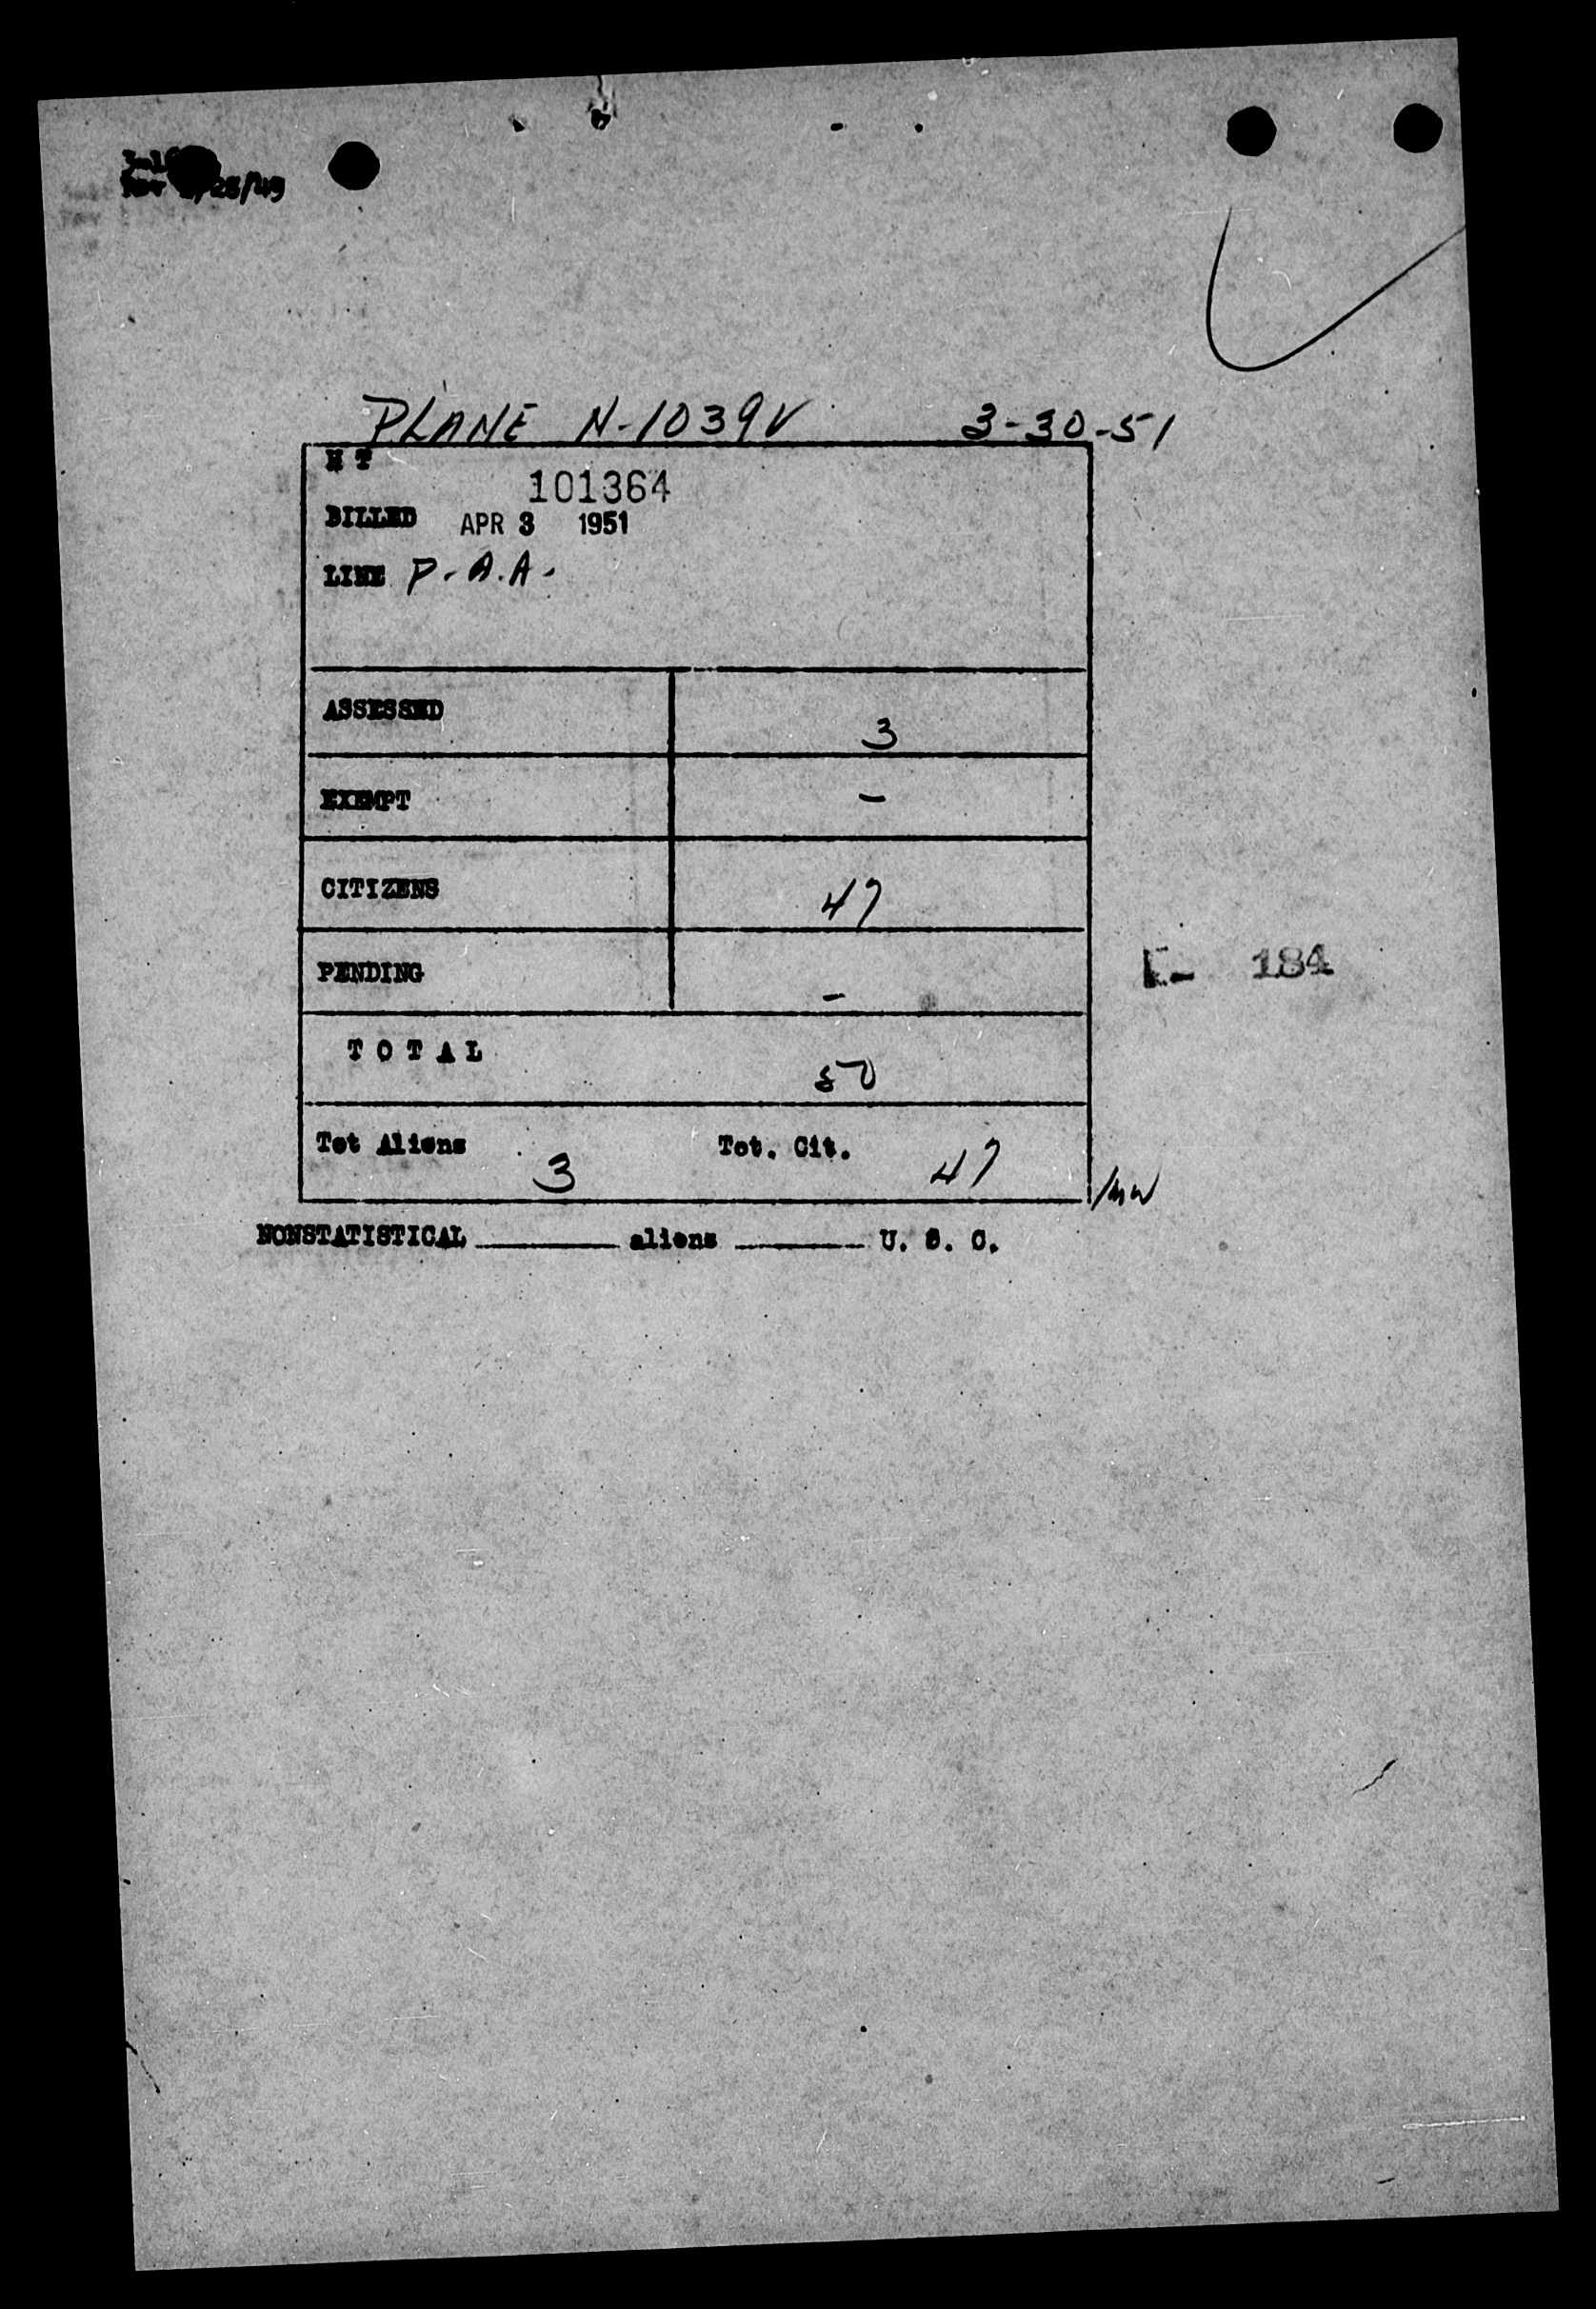 /25/49
PLANE N-1039V 3-30-51
H T
101364
BILLED APR 3 1951
LINE P.A.A.
ASSESSED 3
EXEMPT -
CITIZENS 47
PENDING -
184
TOTAL 50
Tot Aliens 3 Tot. Cit. 47
NONSTATISTICAL ________ aliens ________ U. S. C.